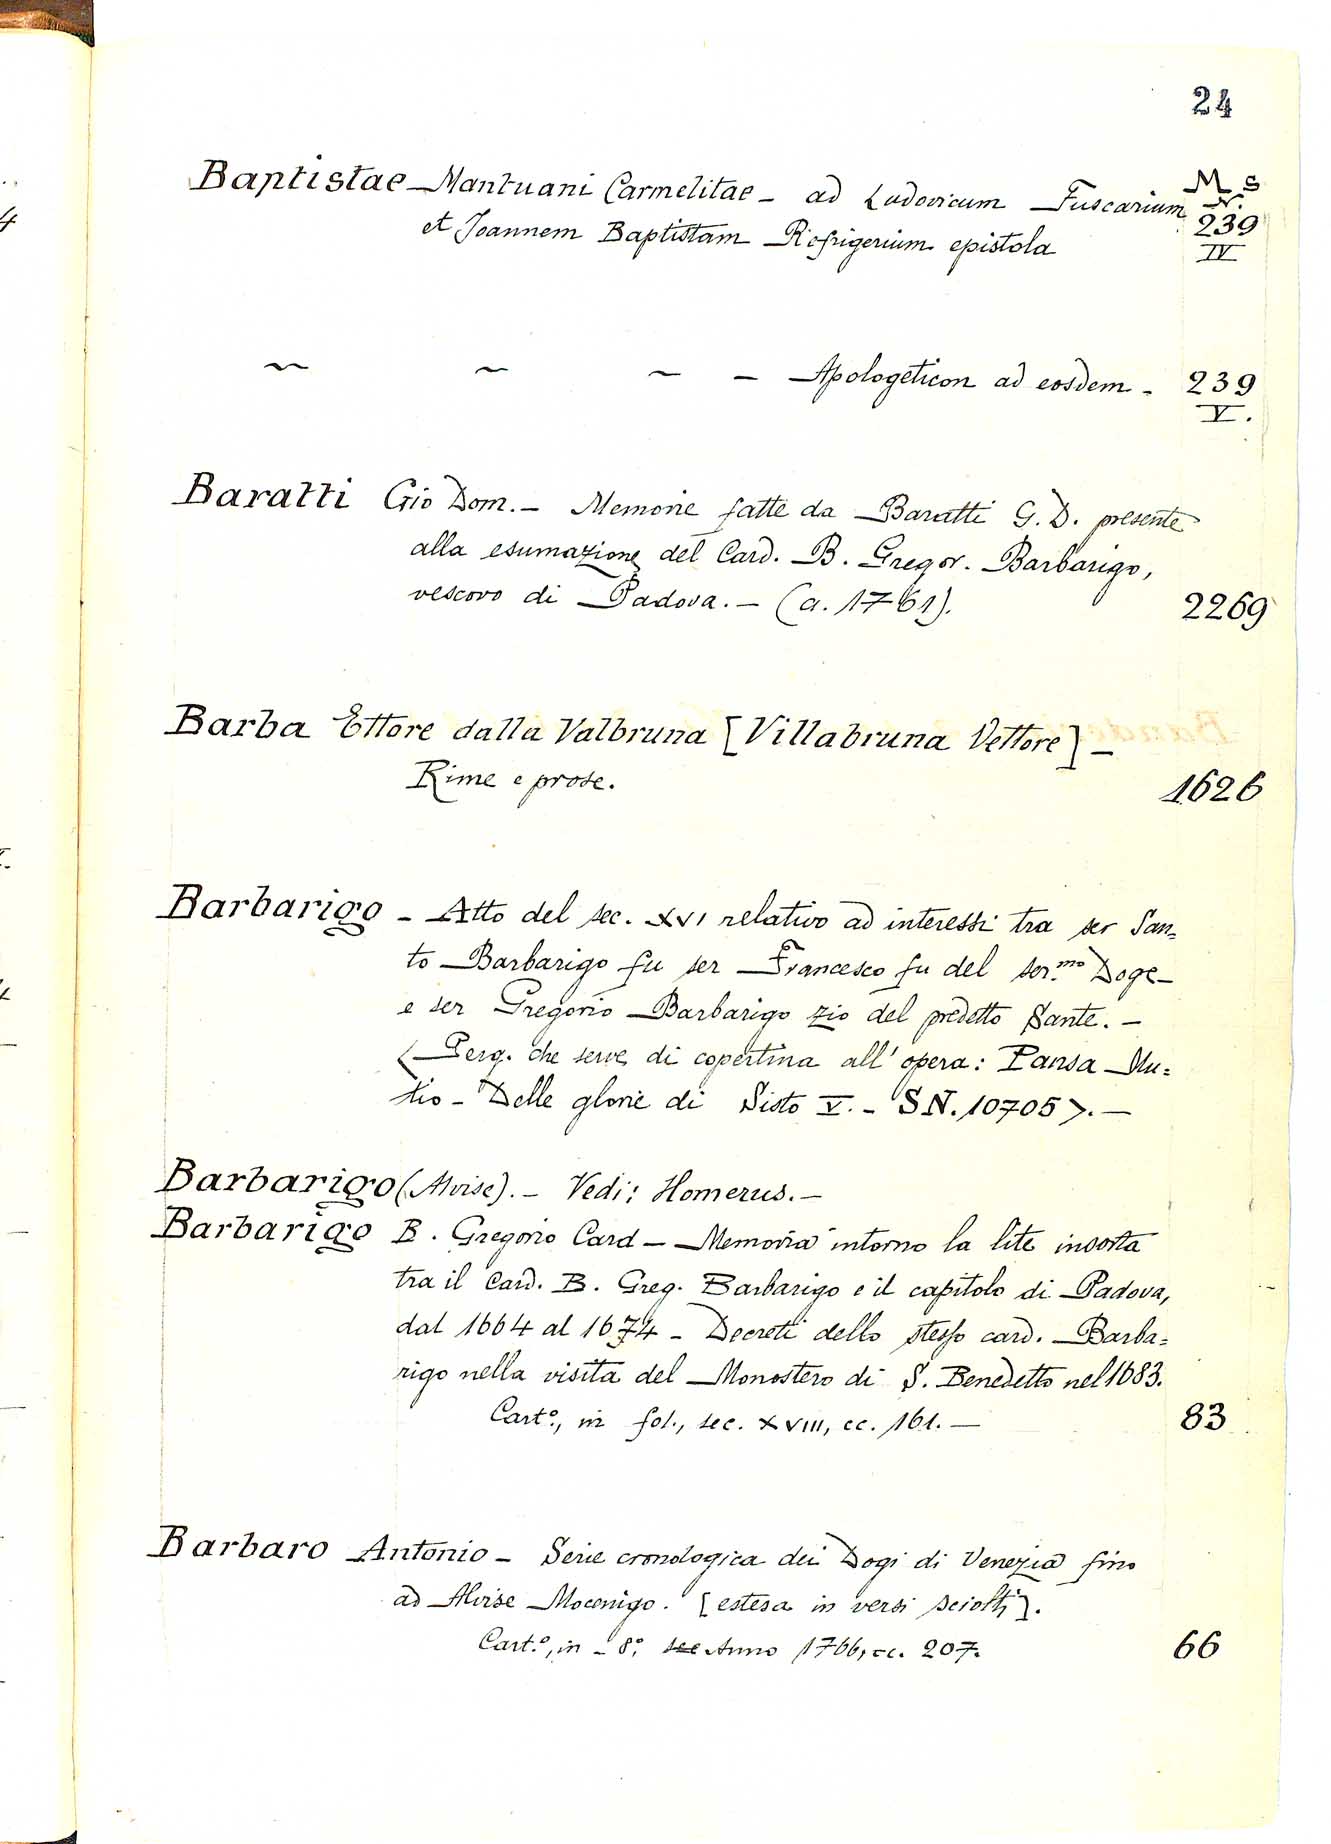 24
Ms
N.
Baptistae Mantuani Carmelitae - ad Ludovicum Fuscarium 239
et Joannem Baptistam Refrigerium epistola IV
~ ~ ~ - Apologeticon ad eosdem - 239
V.
Baratti Gio Dom. - Memorie fatte da Baratti G. D. presente
alla esumazione del Card. B. Gregor. Barbarigo,
vescovo di Padova. - (a. 1761). 2269
Barba Ettore dalla Valbruna [Villabruna Vettore] -
Rime e prose. 1626
Barbarigo - Atto del sec. XVI relativo ad interessi tra ser San=
to Barbarigo fu ser Francesco fu del ser.mo Doge -
e ser Gregorio Barbarigo zio del predetto Sante. -
< Perg. che serve di copertina all' opera: Pansa Mu=
tio - Delle glorie di Sisto V. - SN. 10705 >. -
Barbarigo (Alvise). - Vedi: Homerus. -
Barbarigo B. Gregorio Card - Memoria intorno la lite insorta
tra il Card. B. Greg. Barbarigo e il capitolo di Padova,
dal 1664 al 1674 - Decreti dello stesso card. Barba=
rigo nella visita del Monostero di S. Benedetto nel 1683.
Cart.º, in fol., sec. XVIII, cc. 161. - 83
Barbaro Antonio - Serie cronologica dei Dogi di Venezia fino
ad Alvise Mocenigo. [estesa in versi sciolti].
Cart.º, in - 8º, sec Anno 1766, cc. 207. 66